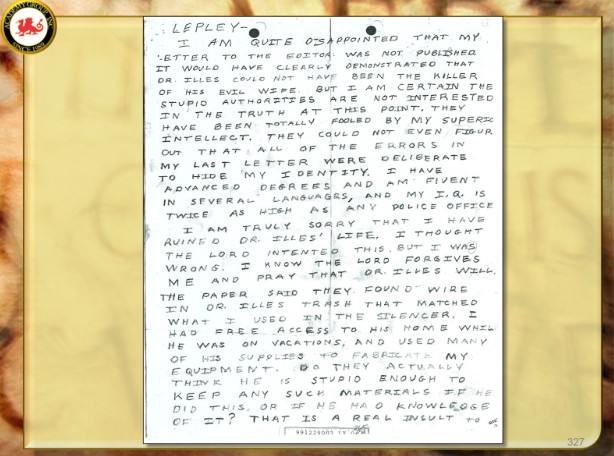 ACADEMY GROUP, INC.
SINCE 1989
LEPLEY—
I AM QUITE DISAPPOINTED THAT MY
LETTER TO THE EDITOR WAS NOT PUBLISHED.
IT WOULD HAVE CLEARLY DEMONSTRATED THAT
DR. ILLES COULD NOT HAVE BEEN THE KILLER
OF HIS EVIL WIFE. BUT I AM CERTAIN THE
STUPID AUTHORITIES ARE NOT INTERESTED
IN THE TRUTH AT THIS POINT. THEY
HAVE BEEN TOTALLY FOOLED BY MY SUPERIC
INTELLECT. THEY COULD NOT EVEN FIGUR
OUT THAT ALL OF THE ERRORS IN
MY LAST LETTER WERE DELIBERATE
TO HIDE MY IDENTITY. I HAVE
ADVANCED DEGREES AND AM FLUENT
IN SEVERAL LANGUAGES, AND MY I.Q. IS
TWICE AS HIGH AS ANY POLICE OFFICE
I AM TRULY SORRY THAT I HAVE
RUINED DR. ILLES' LIFE. I THOUGHT
THE LORD INTENTED THIS, BUT I WAS
WRONG. I KNOW THE LORD FORGIVES
ME AND PRAY THAT DR. ILLES WILL.
THE PAPER SAID THEY FOUND WIRE
IN DR. ILLES TRASH THAT MATCHED
WHAT I USED IN THE SILENCER. I
HAD FREE ACCESS TO HIS HOME WHIL
HE WAS ON VACATIONS, AND USED MANY
OF HIS SUPPLIES TO FABRICATE MY
EQUIPMENT. DO THEY ACTUALLY
THINK HE IS STUPID ENOUGH TO
KEEP ANY SUCH MATERIALS IF HE
DID THIS, OR IF HE HAD KNOWLEDGE
OF IT? THAT IS A REAL INSULT TO
327